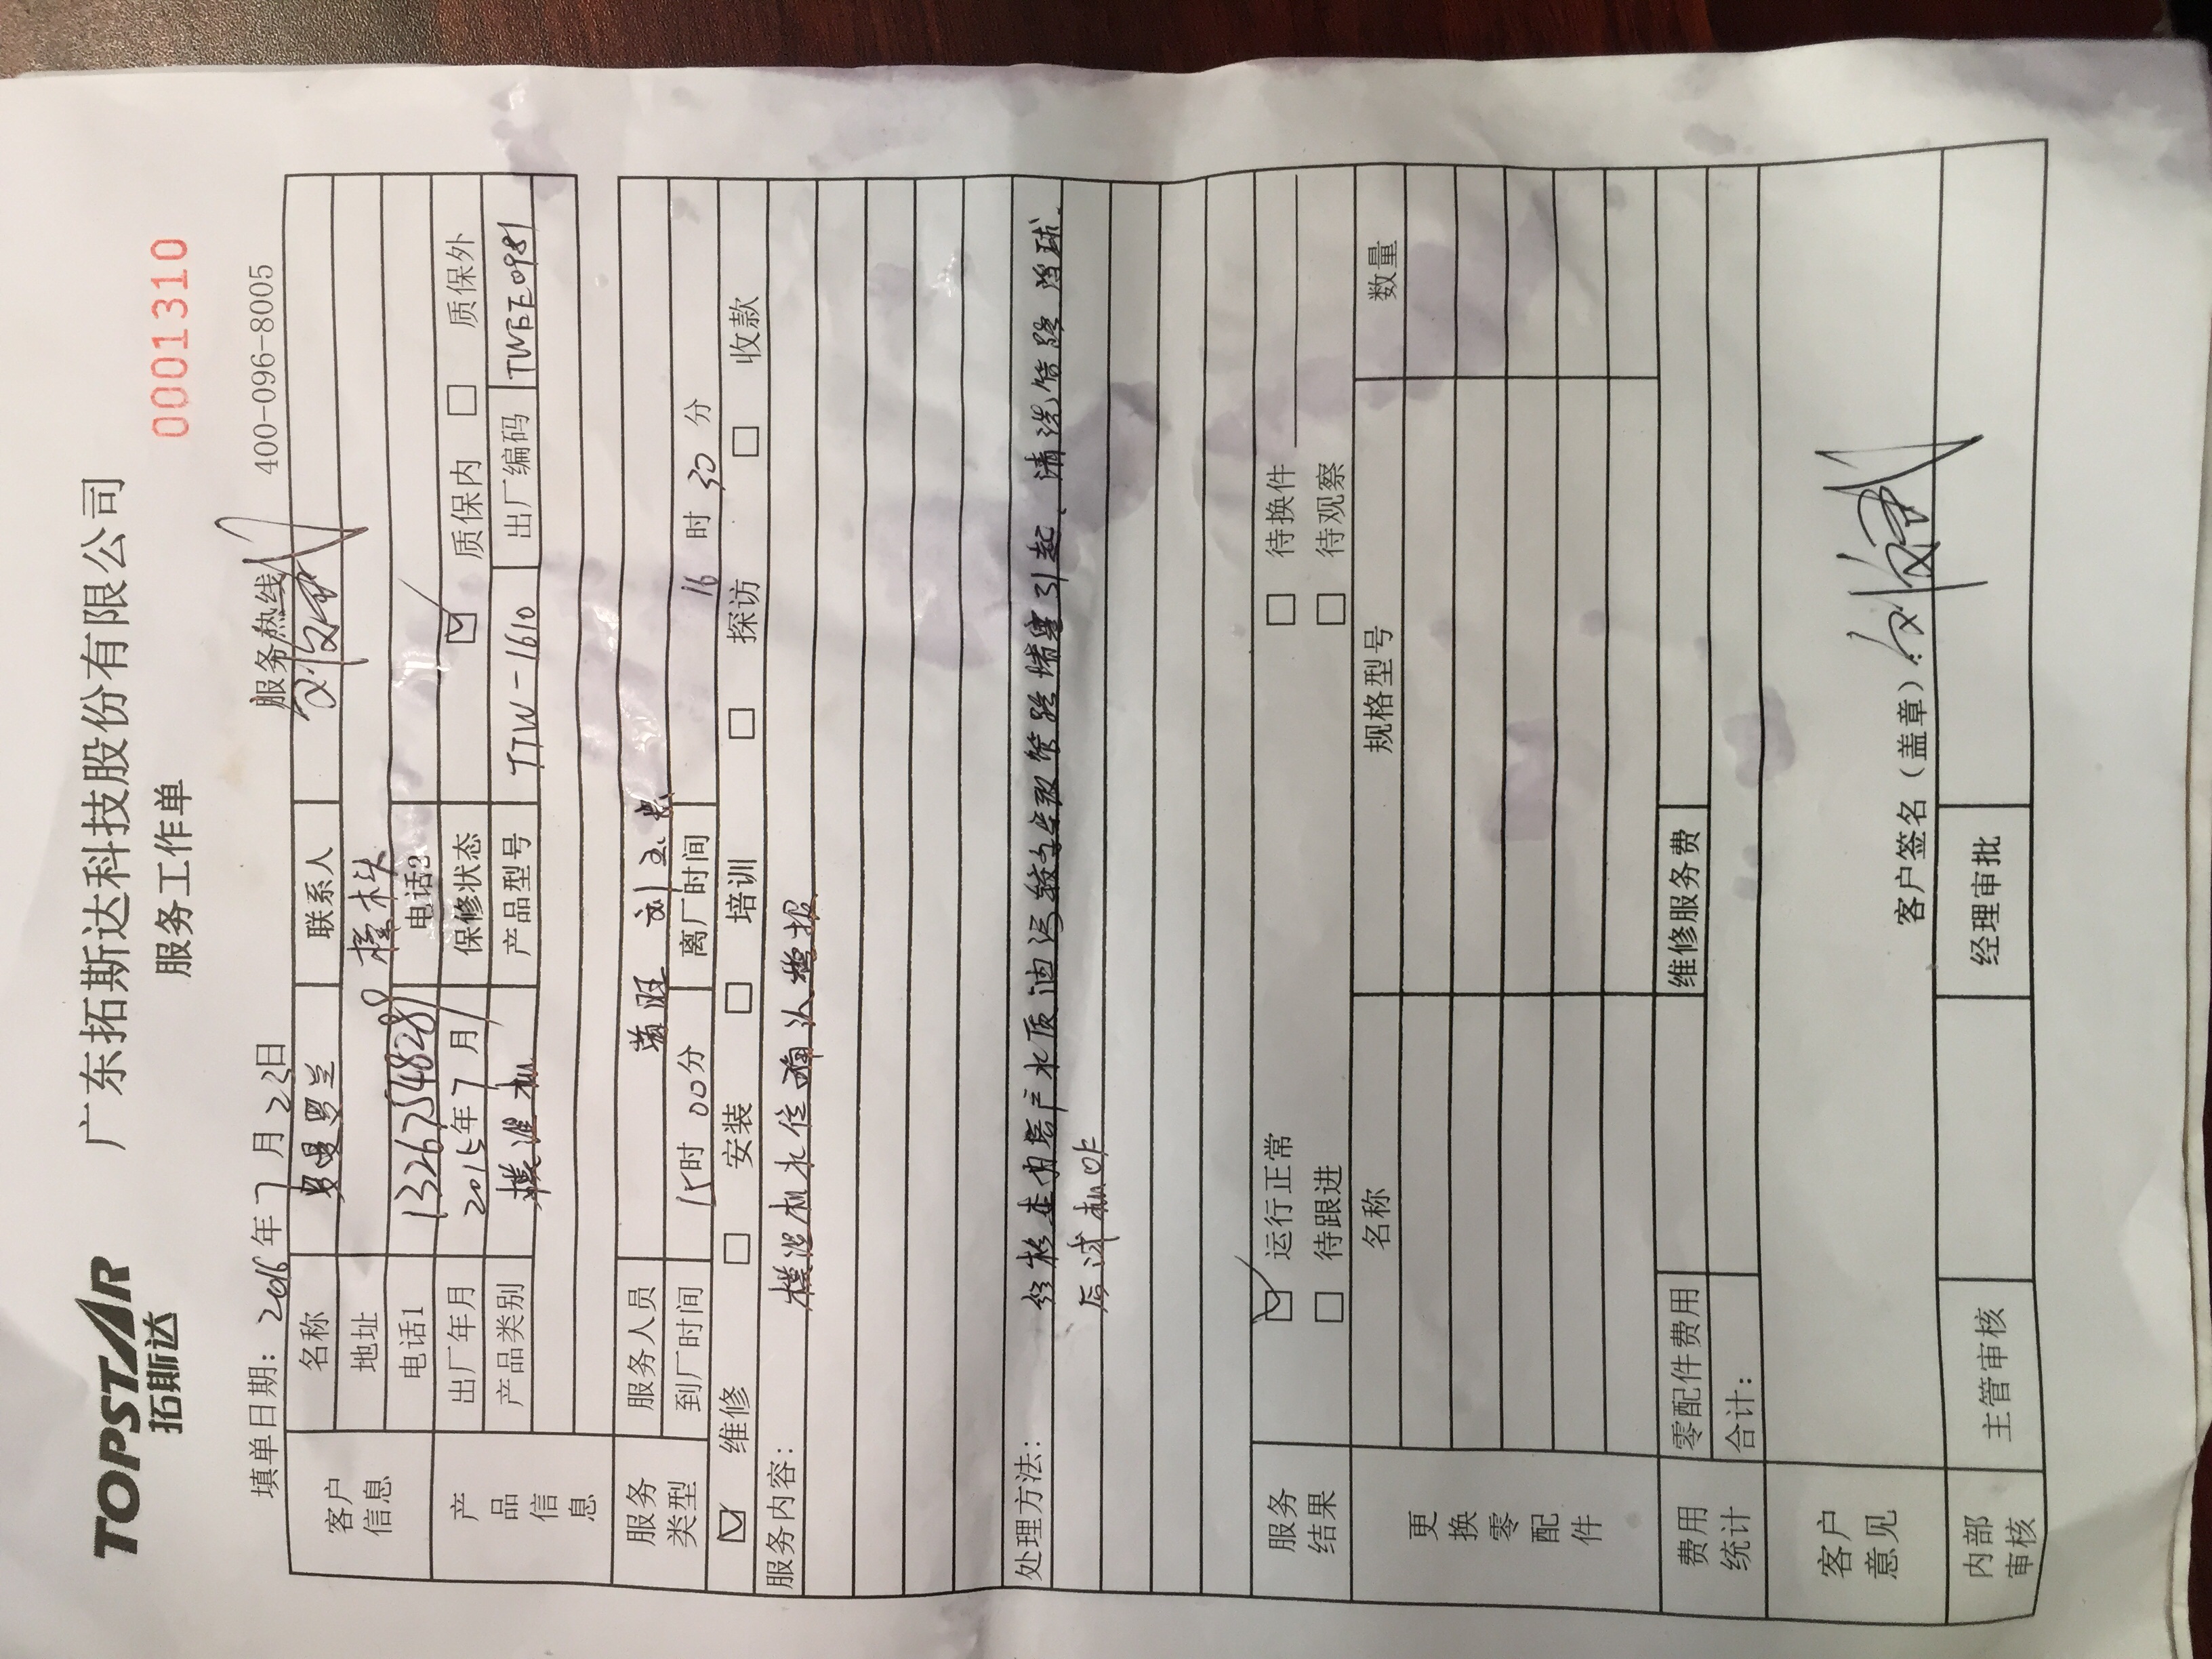 TOPSTAR
拓斯达
广东拓斯达科技股份有限公司
服务工作单
0001310
填单日期：2016年7月22日 服务热线 400-096-8005
客户信息
名称 曼曼兰 联系人
地址 樟木头
电话1 13267548289 电话2
产品信息
出厂年月 2015年7月 保修状态 ☑ 质保内 □ 质保外
产品类别 模温机 产品型号 TTW-1610 出厂编码 TWEE0981
服务类型
服务人员
到厂时间 15时00分 离厂时间 16时30分
☑ 维修 □ 安装 □ 培训 □ 探访 □ 收款
服务内容：
模温机水位确认警报
处理方法：
经检查因客户水质油污较多导致管路堵塞引起，清洗管路浮球
后试机OK
服务结果
☑ 运行正常 □ 待换件
□ 待跟进 □ 待观察
更换零配件
名称 规格型号 数量
费用统计
零配件费用 维修服务费
合计：
客户意见
客户签名（盖章）：
内部审核
主管审核 经理审批